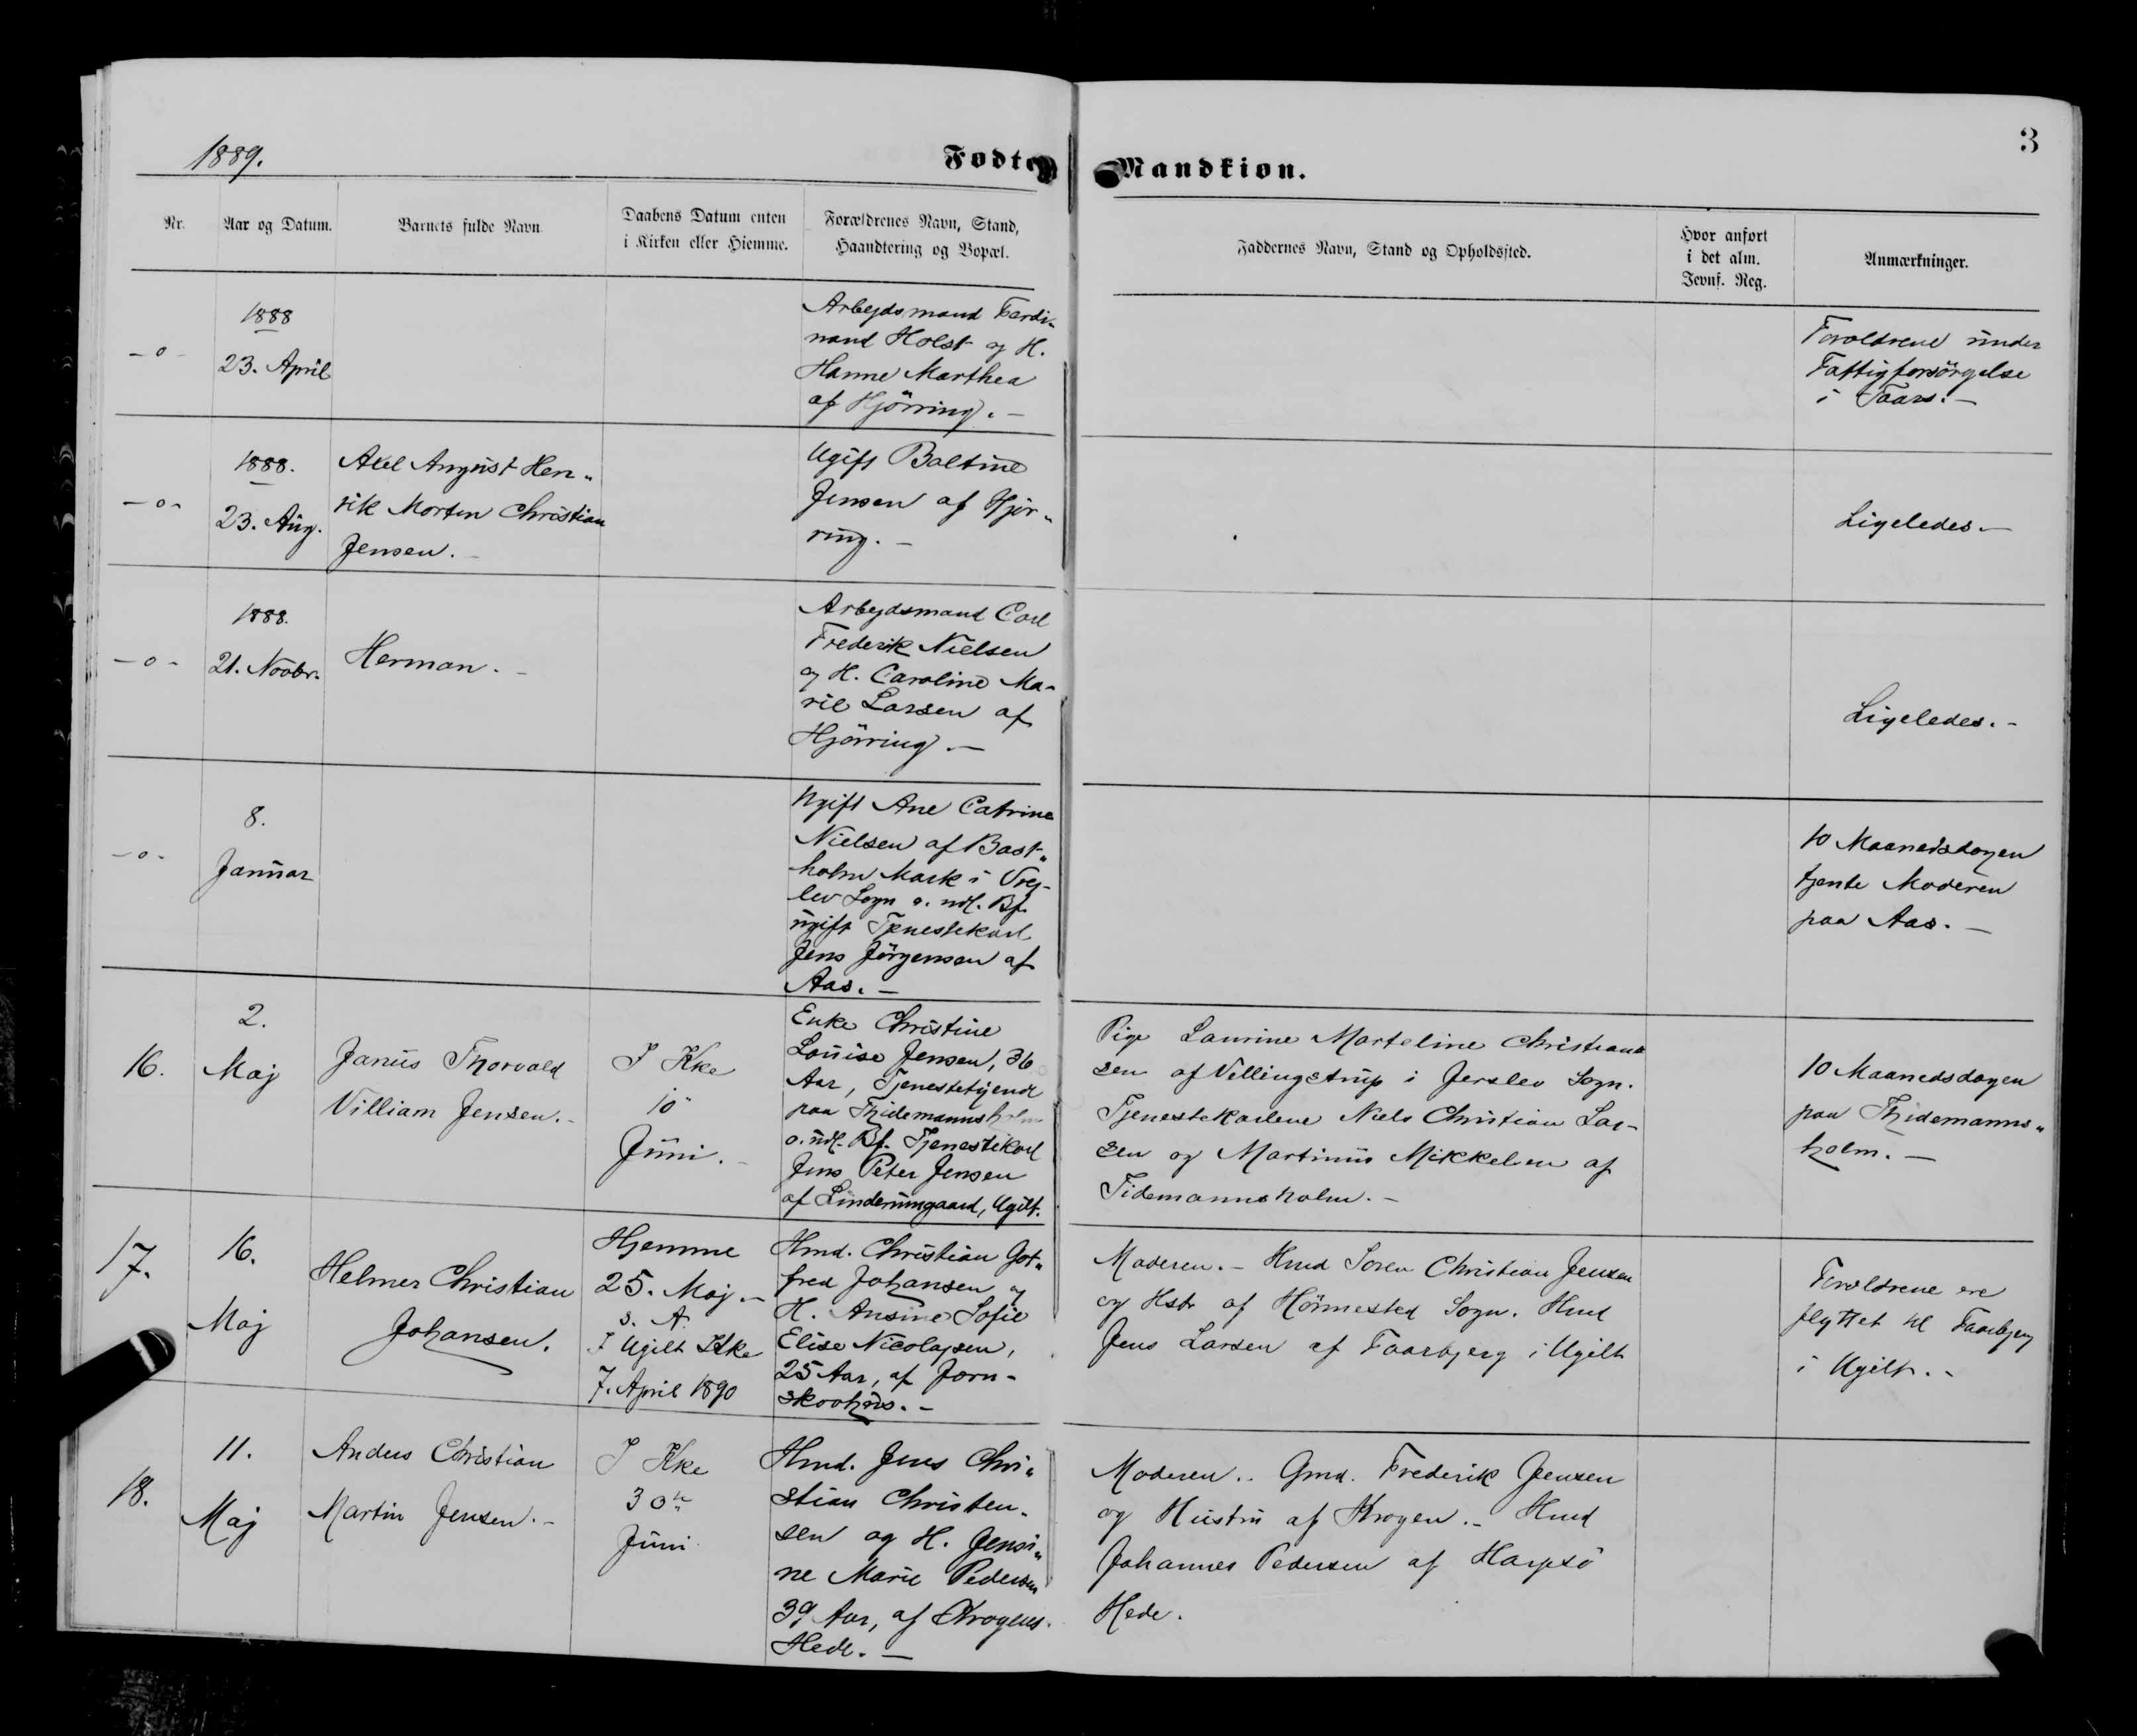 1889.
Fødte Mandkiøn.
3
Nr.
Aar og Datum.
Barnets fulde Navn.
Daabens Datum enten
i Kirken eller Hiemme.
Forældrenes Navn, Stand,
Haandtering og Bopæl.
Faddernes Navn, Stand og Opholdssted.
Hvor anført
i det alm.
Jevnf. Reg.
Anmærkninger.
- o -
1888
23. April
Arbejdsmand Ferdi„
nand Holst og H.
Hanne Marthea
af Hjörring. -
Forældrene under
Fattigforsörgelse
i Taars. -
- o -
1888.
23. Aug.
Axel August Hen„
rik Morten Christian
Jensen. -
Ugift Boltine
Jensen af Hjör„
ring. -
Ligeledes. -
- o -
1888.
21. Novbr.
Herman. -
Arbejdsmand Carl
Frederik Nielsen
og H. Caroline Ma-
rie Larsen af
Hjörring. -
Ligeledes. -
- o -
8.
Januar
Ugift Ane Catrine
Nielsen af Bast„
holm Mark i Vrej-
lev Sogn o. udl. Bf.
ugift Tjenestekarl
Jens Jörgensen af
Aas. -
10 Maanedsdagen
tjente Moderen
paa Aas. -
16.
2.
Maj
Janus Thorvald
Villiam Jensen. -
I Kke
10
Juni. -
Enke Christine
Louise Jensen, 36
Aar, Tjenestetyende
paa Thidemannsholm
o. udl. Bf. Tjenestekarl
Jens Peter Jensen
af Linderumgaard, Ugilt.
Pige Laurine Marteline Christian
sen af Vellingstrup i Jerslev Sogn.
Tjenestekarlene Niels Christian Lar-
sen og Martinus Mikkelsen af
Tidemannsholm. -
10 Maanedsdagen
paa Thidemanns„
holm. -
17.
16.
Maj
Helmer Christian
Johansen.
Hjemme
25. Maj -
s. A.
I Ugilt Kke
7. April 1890
Hmd. Christian Got„
fred Johansen og
H. Ansine Sofie
Elise Nicolajsen,
25 Aar, af Jorn-
skovhus. -
Moderen. - Hmd Soren Christian Jensen
og Hstr af Hörmested Sogn. Hmd
Jens Larsen af Faarbjerg i Ugilt
Forældrene ere
flyttet til Faarbjerg
i Ugilt. -
18.
11.
Maj
Anders Christian
Martin Jensen. -
I Kke
30te
Juni
Hmd. Jens Chri„
stian Christen„
sen og H. Jensi„
ne Marie Pedersen
39 Aar, af Krogens
Hede. -
Moderen. - Gmd. Frederik Jensen
og Hustru af Krogen. - Hmd
Johannes Pedersen af Harpsö
Hede.